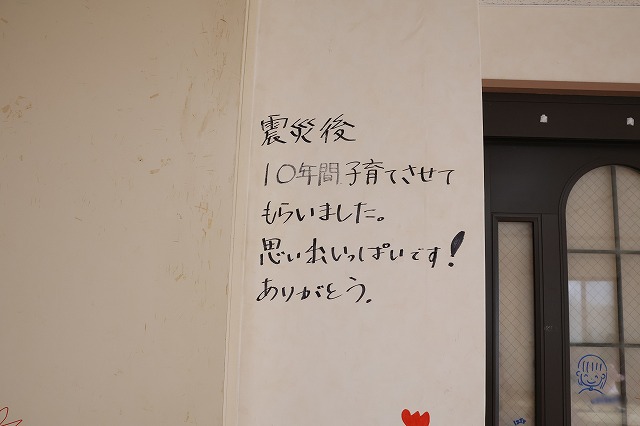 震災後
10年間子育てさせて
もらいました。
思い出いっぱいです!
ありがとう。